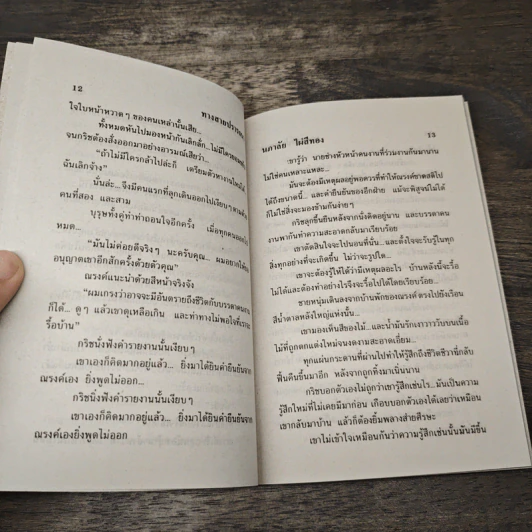 12
ทางสายปรารถนา
ใจใบหน้าหวาดๆ ของคนเหล่านั้นเสีย...
ทั้งหมดหันไปมองหน้ากันเลิกลั่ก...ไม่มีใคร
จนกริชต้องสั่งออกมาอย่างอารมณ์เสียว่า...
"ถ้าไม่มีใครกล้าไปล่ะก็ เตรียมตัวหางานใหม่
ฉันเลิกจ้าง"
นั่นล่ะ...จึงมีคนแรกที่ลุกเดินออกไปเงียบๆ ตามด้วย
คนที่สอง และสาม
บุรุษทั้งคู่ทำท่าถอนใจอีกครั้ง เมื่อทุกคนออกไป
หมด...
"มันไม่ค่อยดีจริงๆ นะครับคุณ... ผมอยากให้คุณ
อนุญาตเขาอีกสักครั้งด้วยตัวคุณ"
ณรงค์แนะนำด้วยสีหน้าจริงจัง
"ผมเกรงว่าอาจจะมีอันตรายถึงชีวิตกับบรรดาคนงาน
ก็ได้... ดูๆ แล้วเขาดุเหลือเกิน และท่าทางไม่พอใจที่เราจะ
รื้อบ้าน"
กริชนิ่งฟังคำรายงานนั้นเงียบๆ
เขาเองก็คิดมากอยู่แล้ว ยิ่งมาได้ยินคำยืนยันจาก
ณรงค์เอง ยิ่งพูดไม่ออก...
กริชนิ่งฟังคำรายงานนั้นเงียบๆ
เขาเองก็คิดมากอยู่แล้ว... ยิ่งมาได้ยินคำยืนยันจาก
ณรงค์เองยิ่งพูดไม่ออก
นภาลัย ไผ่สีทอง
13
เขารู้ว่า นายช่างหัวหน้าคนงานที่ร่วมงานกันมานาน
ไม่ใช่คนเหลาะแหละ...
มันจะต้องมีเหตุผลอยู่พอควรที่ทำให้ณรงค์ขาดสติไป
ได้ถึงขนาดนี้... และคำยืนยันของอีกฝ่าย แม้จะพิสูจน์ไม่ได้
ก็ไม่ใช่สิ่งจะมองข้ามกันง่ายๆ
กริชลุกขึ้นยืนหลังจากนั่งคิดอยู่นาน และบรรดาคน
งานพากันทำความสะอาดกลับมาเรียบร้อย
เขาตัดสินใจจะไปนอนที่นั่น...และตั้งใจจะรับรู้ในทุก
สิ่งทุกอย่างที่จะเกิดขึ้น ไม่ว่าจะรูปใด...
เขาจะต้องรู้ให้ได้ว่ามีเหตุผลอะไร บ้านหลังนี้จะรื้อ
ไม่ได้และต้องทำอย่างไรจึงจะรื้อไปได้โดยเรียบร้อย...
ชายหนุ่มเดินลงจากบ้านพักของณรงค์ ตรงไปยังเรือน
สีน้ำตาลหลังใหญ่แห่งนั้น...
เขามองเห็นสีของไม้... และน้ำมันรักเงาวาววับบนเนื้อ
ไม้ที่ถูกตกแต่งใหม่จนงดงามสะอาดเอี่ยม...
ทุกแผ่นกระดานที่ผ่านไปทำให้รู้สึกถึงชีวิตชีวาที่กลับ
ฟื้นคืนขึ้นมาอีก หลังจากถูกทิ้งมาเนิ่นนาน
กริชบอกตัวเองไม่ถูกว่าเขารู้สึกเช่นไร...มันเป็นความ
รู้สึกใหม่ที่ไม่เคยมีมาก่อน เกือบบอกตัวเองได้เลยว่าเหมือน
เขากลับมาบ้าน แล้วก็ต้องยิ้มพลางส่ายศีรษะ
เขาไม่เข้าใจเหมือนกันว่าความรู้สึกเช่นนั้นมันมีขึ้น